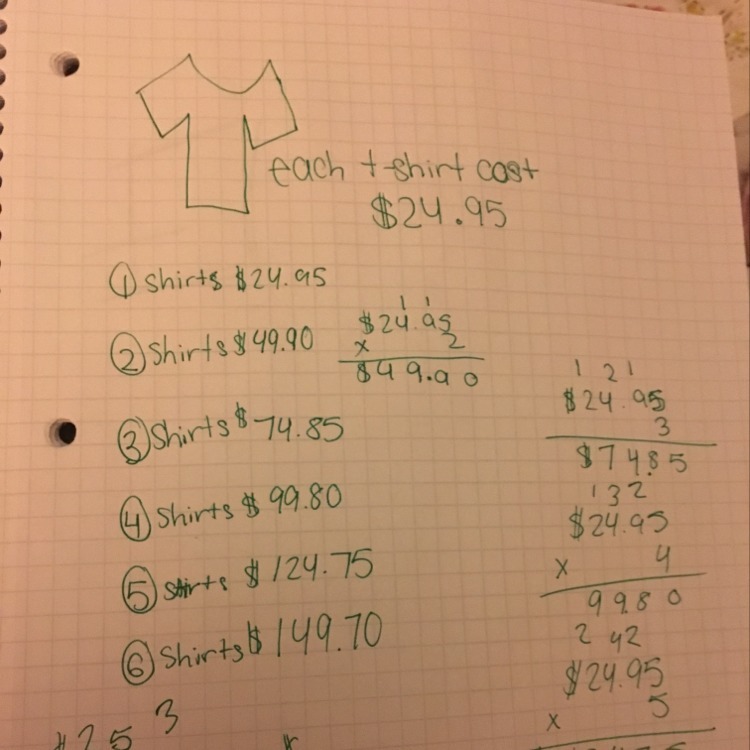 each t-shirt cost
$24.95
① Shirts $24.95
② Shirts $49.90
1 1
$24.95
x 2
$49.90
③ Shirts $74.85
1 2 1
$24.95
3
$74.85
④ Shirts $99.80
1 3 2
$24.95
x 4
99.80
⑤ Shirts $124.75
2 42
$24.95
x 5
⑥ Shirts $149.70
253